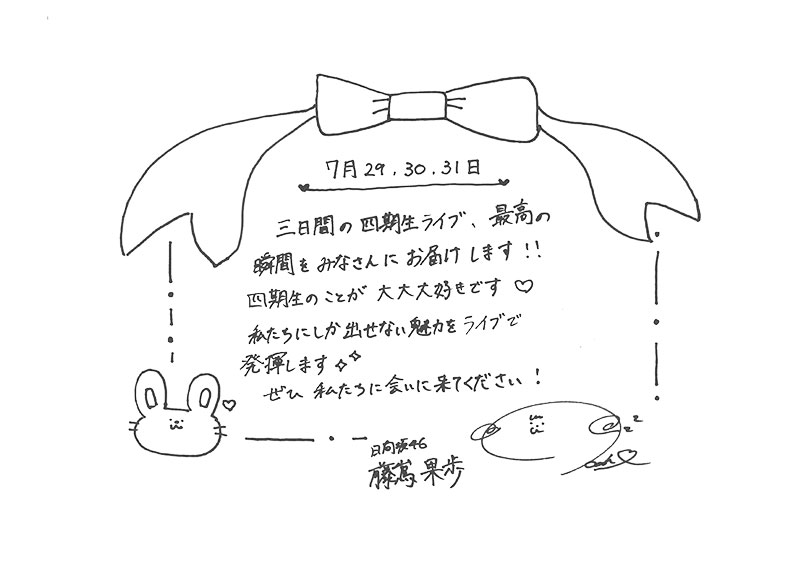 7月29.30.31日
三日間の四期生ライブ、最高の
瞬間をみなさんにお届けします!!
四期生のことが大大大好きです♡
私たちにしか出せない魅力をライブで
発揮します
ぜひ私たちに会いに来てください!
日向坂46
藤嶌果歩